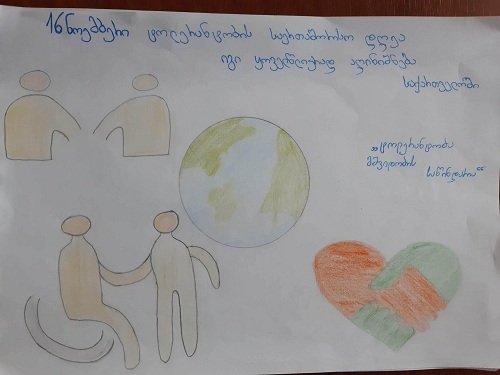 16 ნოემბერი ტოლერანტობის საერთაშორისო დღეა
იგი ყოველწლიურად აღინიშნება
საქართველოში
„ტოლერანტობა
მშვიდობის
საწინდარია“